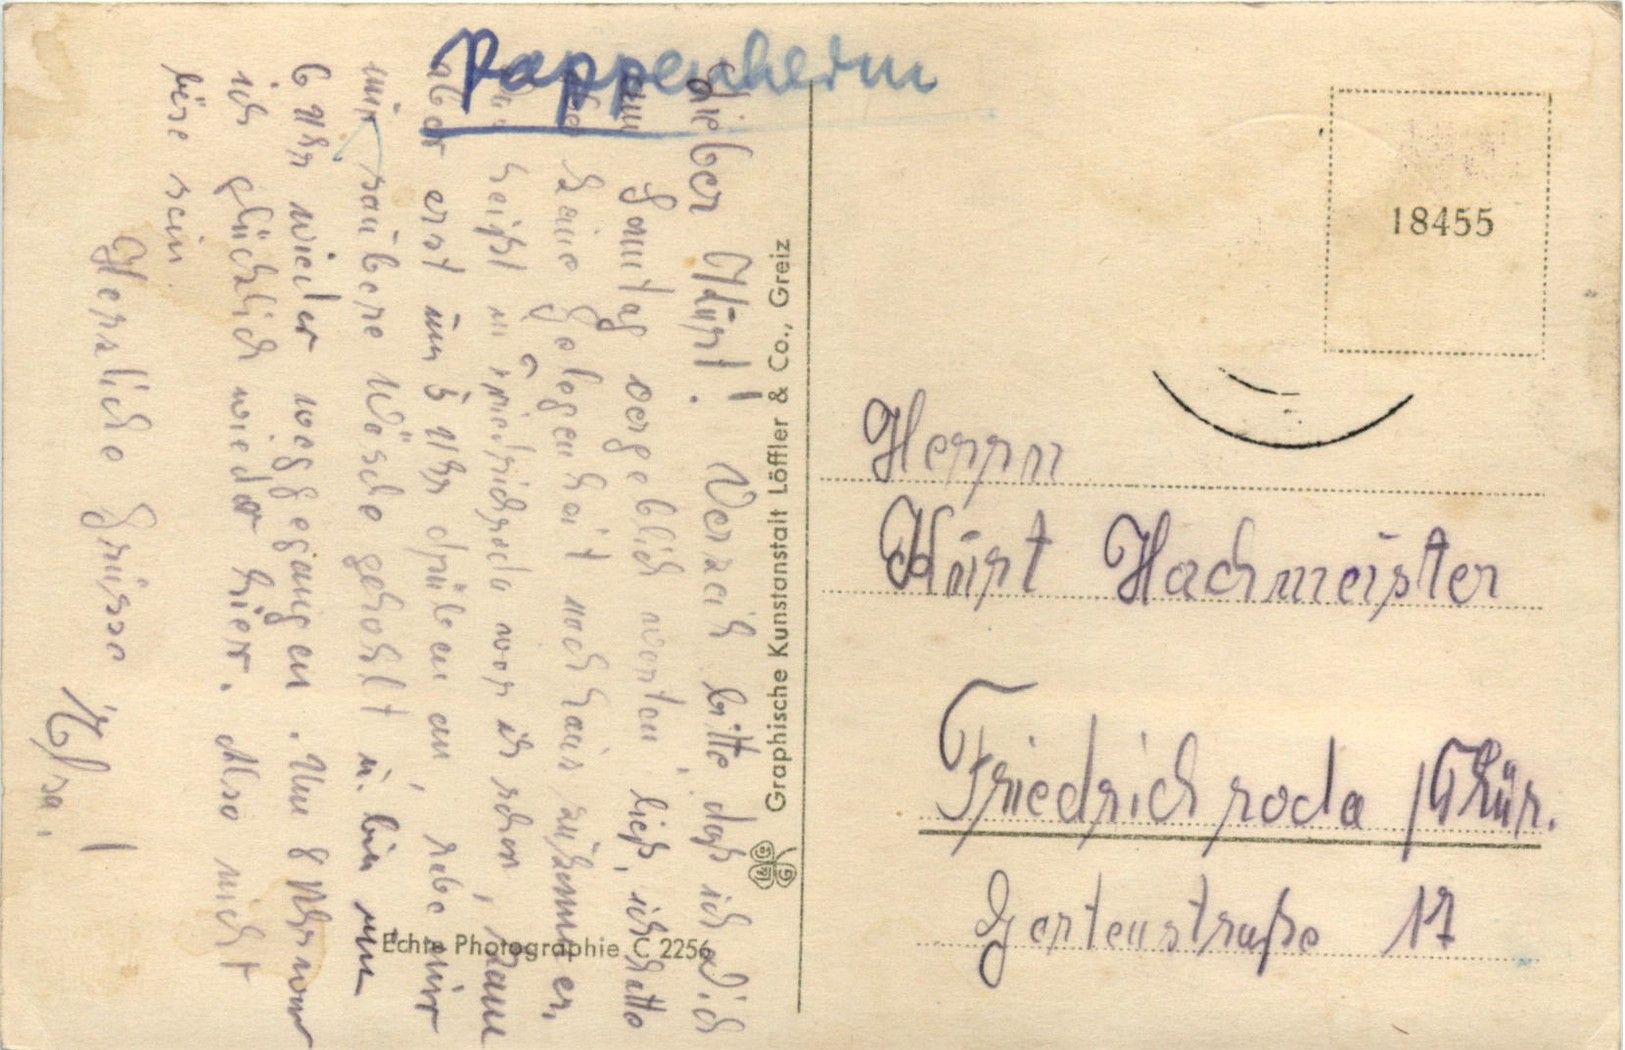 Pappenheim
Lieber Kurt! Verzeih bitte daß ich Dich
am Sonntag vergeblich warten ließ, ich hatte
keine Gelegenheit nach haus zukommen,
das heißt in Friedrichroda war ich schon, kam
aber erst um 5 Uhr drüben an, habe mir
mir saubere Wäsche geholt u. bin um
6 Uhr wieder weggegangen. Um 8 Uhr war
ich glücklich wieder hier. Also nicht
böse sein.
Herzliche Grüsse
Graphische Kunstanstalt Löffler & Co., Greiz
Echte Photographie C 2256
18455
Herrn
Kurt Hachmeister
Friedrichroda /Thür.
Gartenstraße 17